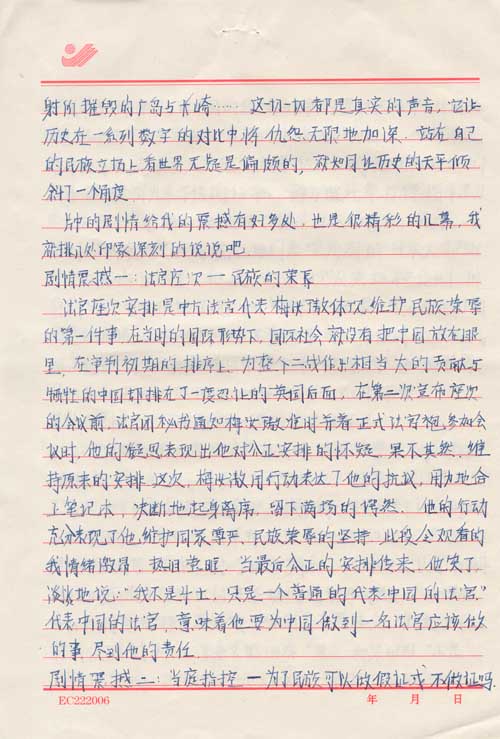 射前摧毁的广岛与长崎……这一切一切都是真实的声音，它让
历史在一系列数字的对比中将仇怨无限地加深。站在自己
的民族立场上看世界无疑是偏颇的，就如同让历史的天平倾
斜了一个角度
片中的剧情给我的震撼有好多处，也是很精彩的几幕，我
就挑几处印象深刻的说说吧
剧情震撼一：法官座次——民族的荣辱
法官座次安排是中方法官代表梅汝璈体现维护民族荣辱
的第一件事，在当时的国际形势下，国际社会都没有把中国放在眼
里，在审判初期的排序上，为整个二战作出相当大的贡献与
牺牲的中国却排在了一度忍让的英国后面，在第二次宣布座次
的会议前，法官团秘书通知梅汝璈准时并着正式法官袍参加会
议时，他的凝思表现出他对公正安排的怀疑，果不其然，维
持原来的安排，这次，梅汝璈用行动表达了他的抗议，用力地合
上笔记本，决断地起身离席，留下满场的愕然。他的行动
充分表现了他维护国家尊严，民族荣辱的坚持，此段令观看的
我情绪激昂，热泪盈眶，当最后公正的安排传来，他笑了，
淡淡地说：“我不是斗士，只是一个普通的代表中国的法官”
代表中国的法官，意味着他要为中国做到一名法官应该做
的事，尽到他的责任
剧情震撼二：当庭指控——为了民族可以做假证或不做证吗
EC222006 年 月 日